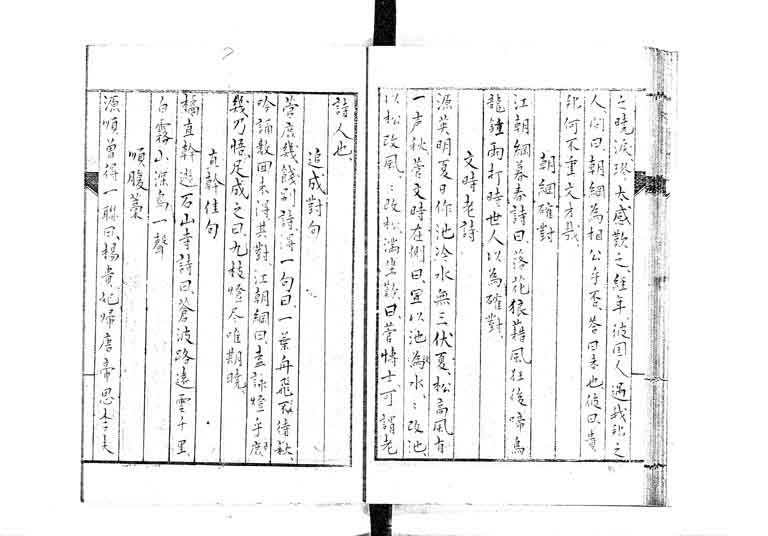 之曉淚琢太感歎之、経年、彼国人遇我邦之
人問曰、朝綱為相公乎否、答曰未也、彼曰、貴
邦何不重文才哉、
朝綱確對
江朝綱暮春詩曰、落花狼藉風狂後、啼鳥
龍鐘雨打時、世人以為確對、
文時老詩
源英明夏日作池冷水無三伏夏、松高風有
一声秋、菅文時在側曰、宜以池為水、ミ改池、
以松改風、ミ改松、満坐歎曰、菅博士可謂老
詩人也、
追成對句
菅庶幾餞別詩得一句曰、一葉舟飛不待秋、
吟誦数回未得其對、江朝綱曰、盍詠燈乎、庶
幾乃悟、足成之曰、九枝燈尽唯期曉、
直幹佳句
橘直幹遊石山寺詩曰、蒼波路遠雲千里、
白霧山深鳥一聲
順腹藁
源順曽得一聯曰、楊貴妃帰唐帝思、李夫